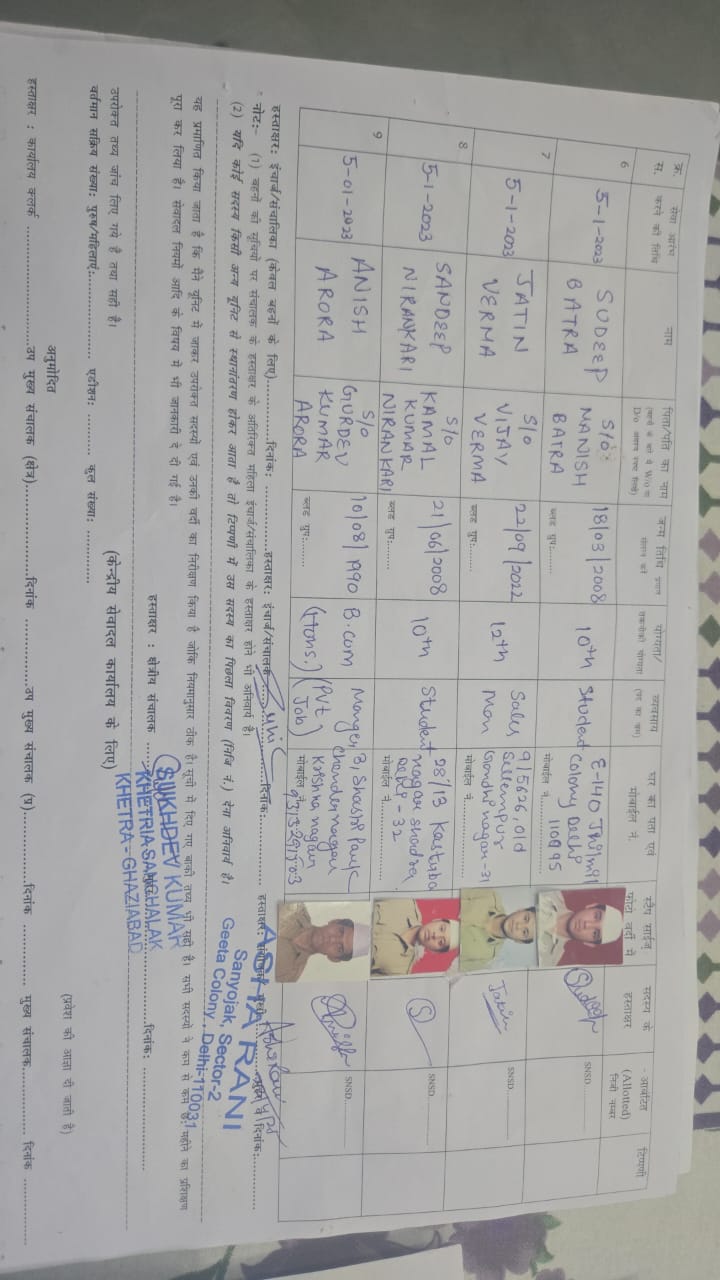 क्र. स.
सेवा आरंभ करने की तिथि
नाम
पिता/पति का नाम
जन्म तिथि
योग्यता/
तकनीकी योग्यता
व्यवसाय
घर का पता एवं
मोबाईल नं.
स्टैंप साईज़
फोटो वर्दी में
सदस्य के
हस्ताक्षर
आवंटित
(Allotted)
निजी नम्बर
टिप्पणी
6
5-1-2023
SUDEEP
BATRA
S/o
MANISH
BATRA
18/03/2008
ब्लड ग्रुप:.......
10th
Student
E-140 Jhilmil
Colony Delhi
110095
मोबाईल नं.
SNSD
7
5-1-2023
JATIN
VERMA
S/o
VIJAY
VERMA
22/09/2022
ब्लड ग्रुप:.......
12th
Sales
Man
9/5626, old
Seelempur
Gandhi nagar-31
मोबाईल नं.
Jatin
SNSD
8
5-1-2023
SANDEEP
NIRANKARI
S/o
KAMAL
KUMAR
NIRANKARI
21/06/2008
ब्लड ग्रुप:.......
10th
Student
28/13 Kastuba
nagar shadra
Delhi-32
मोबाईल नं.
SNSD
9
5-01-2023
ANISH
ARORA
S/o
GURDEV
KUMAR
ARORA
10/08/1990
ब्लड ग्रुप:.......
B.com
(Hons.)
(Pvt
Job)
3, Shastri Park
Chander nagar
Krishna nagar
मोबाईल नं.
SNSD
हस्ताक्षर: इंचार्ज/संचालिका (केवल बहनों के लिए)...............दिनांक: ...............हस्ताक्षर: इंचार्ज/संचालक...............दिनांक:...............
नोट:- (1) बहनों की सूचियों पर संचालक के हस्ताक्षर के अतिरिक्त महिला इंचार्ज/संचालिका के हस्ताक्षर होने भी अनिवार्य है।
(2) यदि कोई सदस्य किसी अन्य यूनिट से स्थानांतरण होकर आता है तो टिप्पणी में उस सदस्य का पिछला विवरण (निजि नं.) देना अनिवार्य है।
ASHA RANI
Sanyojak, Sector-2
Geeta Colony, Delhi-110031
यह प्रमाणित किया जाता है कि मैंने यूनिट में जाकर उपरोक्त सदस्यों एवं उनकी वर्दी का निरीक्षण किया है जोकि नियमानुसार ठीक है। सूची में दिए गए बाकी तथ्य भी सही है। सभी सदस्यों ने कम से कम छः महीने का प्रशिक्षण
पूरा कर लिया है। सेवादल नियमों आदि के विषय में भी जानकारी दे दी गई है।
हस्ताक्षर : क्षेत्रीय संचालक ...............दिनांक: ...............
SUKHDEV KUMAR
KHETRIA SANCHALAK
KHETRA - GHAZIABAD
(केन्द्रीय सेवादल कार्यालय के लिए)
उपरोक्त तथ्य जांच लिए गये है तथा सही है।
वर्तमान सक्रिय संख्या: पुरूष/महिलाएं............... एडीशन: .......... कुल संख्या: ...............
अनुमोदित
(प्रवेश की आज्ञा दी जाती है)
हस्ताक्षर : कार्यालय क्लर्क ...............उप मुख्य संचालक (क्षेत्र)...............दिनांक ...............उप मुख्य संचालक (प्र)...............दिनांक ............... मुख्य संचालक............... दिनांक ...............